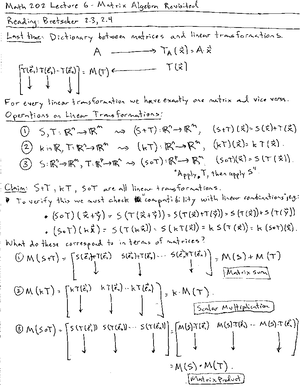 Math 202 Lecture 6 - Matrix Algebra Revisited
Reading: Bretscher 2.3, 2.4
Last time: Dictionary between matrices and linear transformations.
A → T_A(x⃗) = A x⃗
[T(e⃗₁) T(e⃗₂) ⋯ T(e⃗ₙ)] = M(T) ← T(x⃗)
For every linear transformation we have exactly one matrix and vice versa.
Operations on Linear Transformations:
① S,T: ℝⁿ→ℝᵐ ⇒ (S+T): ℝⁿ→ℝᵐ, (S+T)(x⃗) = S(x⃗)+T(x⃗)
② k in ℝ, T: ℝⁿ→ℝᵐ ⇒ (kT): ℝⁿ→ℝᵐ, (kT)(x⃗) = k T(x⃗).
③ (S∘T)(x⃗) = S(T(x⃗)).
"Apply T, then apply S"
Claim: S+T, kT, S∘T are all linear transformations.
• To verify this we must check compatibility with linear combinations, eg:
• (S∘T)(x⃗+y⃗) = S(T(x⃗+y⃗)) = S(T(x⃗)+T(y⃗)) = S(T(x⃗)) + S(T(y⃗))
• (S∘T)(kx⃗) = S(T(kx⃗)) = S(kT(x⃗)) = k S(T(x⃗)) = k (S∘T)(x⃗).
What do these correspond to in terms of matrices?
① M(S+T) = [S(e⃗₁)+T(e⃗₁) S(e⃗₂)+T(e⃗₂) ⋯ S(e⃗ₙ)+T(e⃗ₙ)] = M(S) + M(T)
Matrix sum
② M(kT) = [kT(e⃗₁) kT(e⃗₂) ⋯ kT(e⃗ₙ)] = k·M(T).
Scalar Multiplication
③ M(S∘T) = [S(T(e⃗₁)) S(T(e⃗₂)) ⋯ S(T(e⃗ₙ))] = [M(S)T(e⃗₁) M(S)T(e⃗₂) ⋯ M(S)T(e⃗ₙ)]
= M(S)·M(T).
Matrix Product